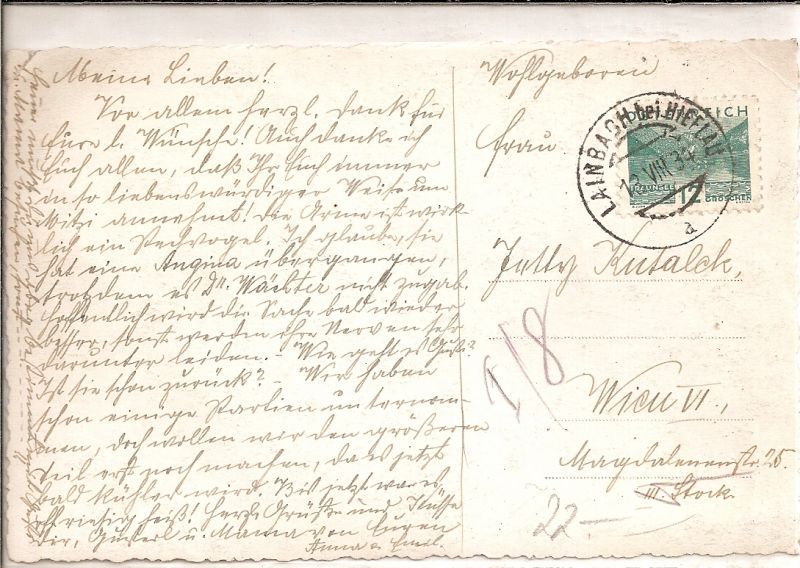 Meine Lieben!
Vor allem herzl. Dank für
Eure l. Wünsche! Auch danke ich
Euch allen, daß Ihr Euch immer
in so liebenswürdiger Weise um
Witzi annehmt! Die Arme ist wirk-
lich ein Pechvogel. Ich glaube, sie
hat eine Angina übergangen,
trotzdem es Dr. Wächter nicht zugab.
Hoffentlich wird die Sache bald wieder
besser, sonst werden ihre Nerven sehr
darunter leiden. - Wie geht es Gusti?
Ist sie schon zurück? - Wir haben
schon einige Partien unternom-
men, doch wollen wir den größeren
Teil erst noch machen, da es jetzt
bald kühler wird. Bis jetzt war es
oft riesig heiß! Herzl. Grüße und Küsse
Dir, Gusterl u. Mama von Eugen
Anna u. Emil.
Wohlgeboren
Frau
Jetty Kutalek,
Wien VI,
Magdalenenstr. 25
III. Stock
LAINBACH
a
REICH
TRAUNSEE
12
GROSCHEN
I/8
22-